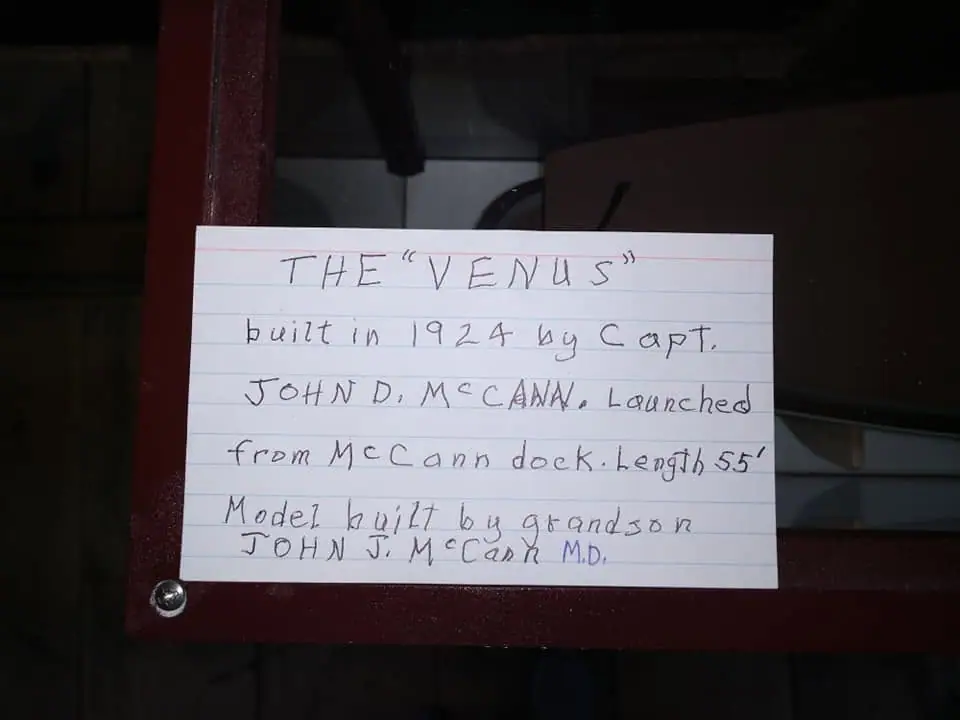 THE "VENUS"
built in 1924 by Capt.
JOHN D. McCANN. Launched
from McCann dock. Length 55'
Model built by grandson
JOHN J. McCann M.D.